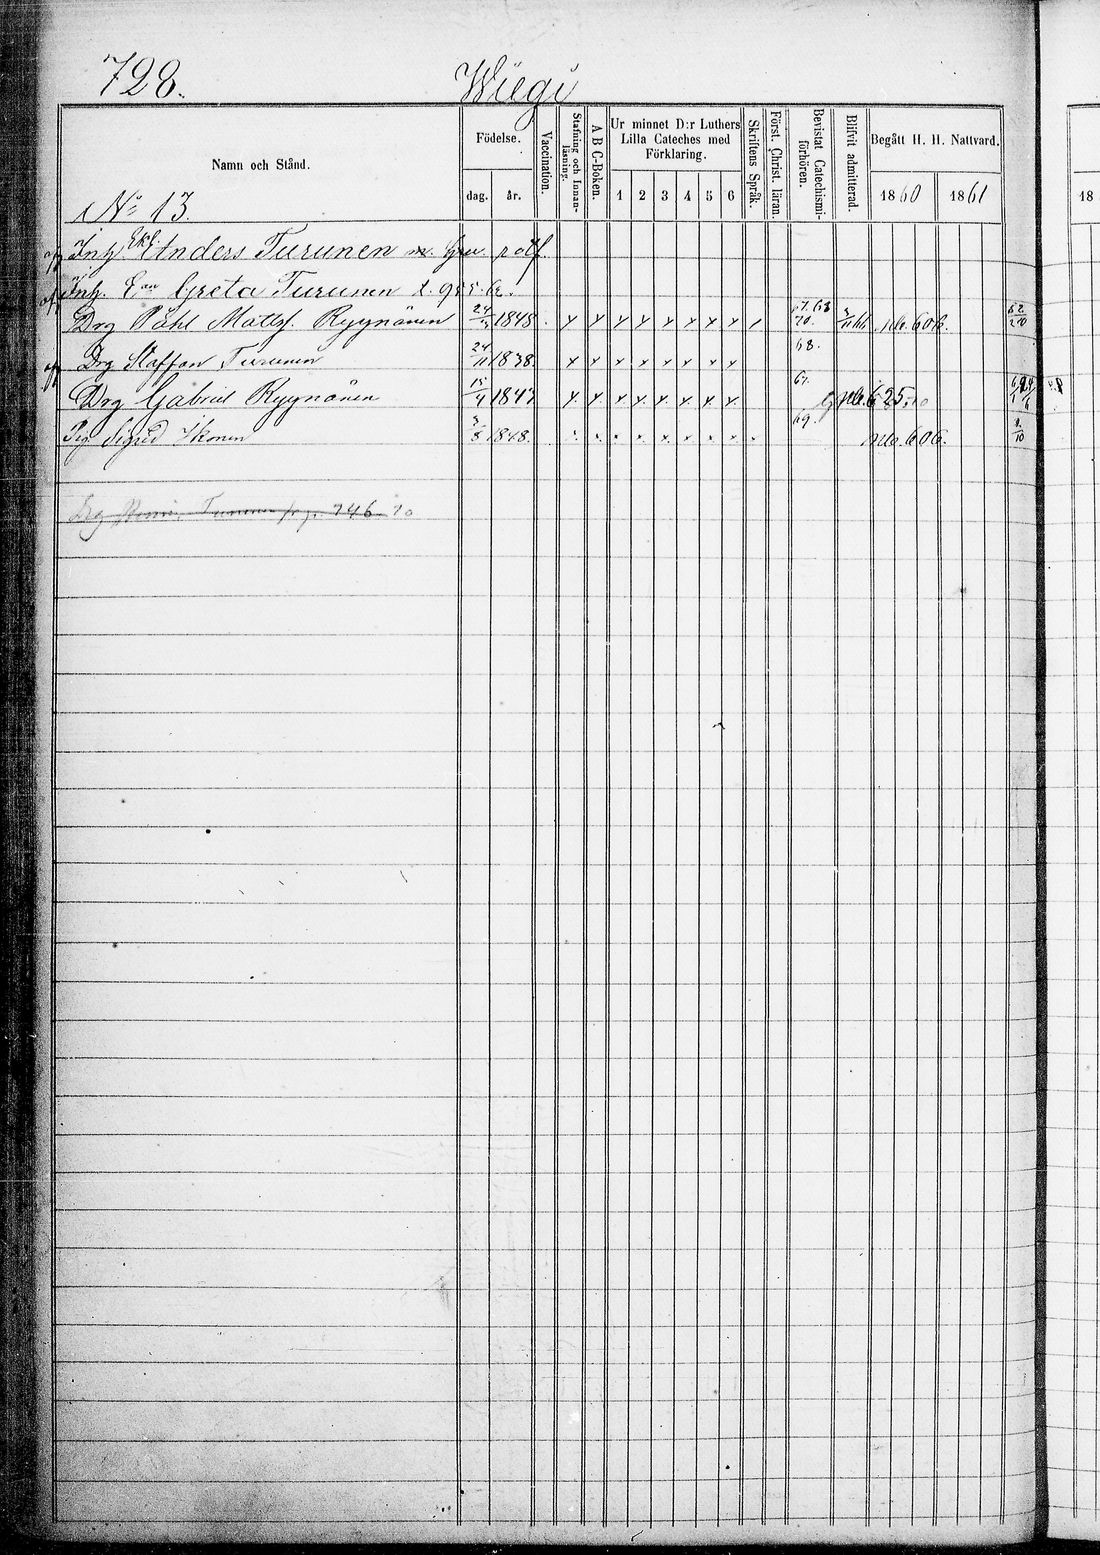 728. Wiegi
Namn och Stånd.
Födelse.
dag. år.
Vaccination.
Stafning och Innan-läsning.
A B C-Boken.
Ur minnet D:r Luthers
Lilla Cateches med
Förklaring.
1 2 3 4 5 6
Skriftens Språk.
Först. Christ. läran.
Bevistat Catechismi-förhören.
Blifvit admitterad.
Begått H. H. Nattvard.
1860 1861
18
No 13.
Inh. Anders Turunen
Inh. Greta Turunen
Drg Påhl Matts. Ryynänen 1848. x x x x x x x x 67. 68 70. 606.
Drg Staffan Turunen 24/11 1838. x x x x x x x x 68.
Drg Gabriel Ryynänen 15/4 1847 x x x x x x x x 67. 625.
Pig Sigrid Ikonen 1848. x x x x x x x x 69. 606.
Drg Turunen 746 70